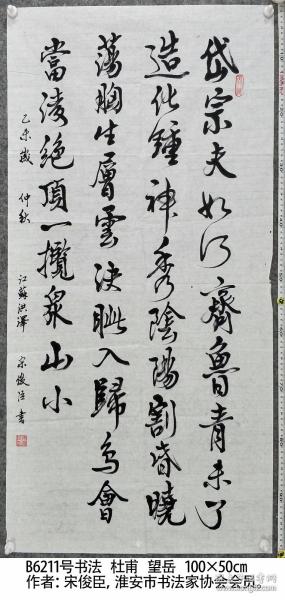 岱宗夫如何齊魯青未了
造化鍾神秀陰陽割昏曉
蕩胸生層雲決眦入歸鳥會
當凌絕頂一攬衆山小
乙未歲 仲秋 江蘇洪澤 宋俊臣書
B6211号书法 杜甫 望岳 100×50㎝
作者：宋俊臣，淮安市书法家协会会员。